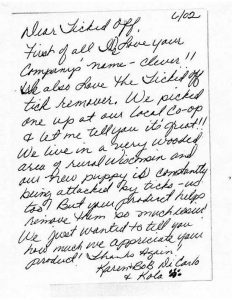 6/02
Dear Ticked Off,
First of all I love your
Company's name - clever!!
We also love the Ticked Off
tick remover. We picked
one up at our local Co-op
& let me tell you it's great!!
We live in a very wooded
area of rural Wisconsin and
our new puppy is constantly
being attacked by ticks - us
too! But your product helps
remove them so much easier!
We just wanted to tell you
how much we appreciate your
product! Thanks Again!
Karen & Bob DiCarlo
& Kola